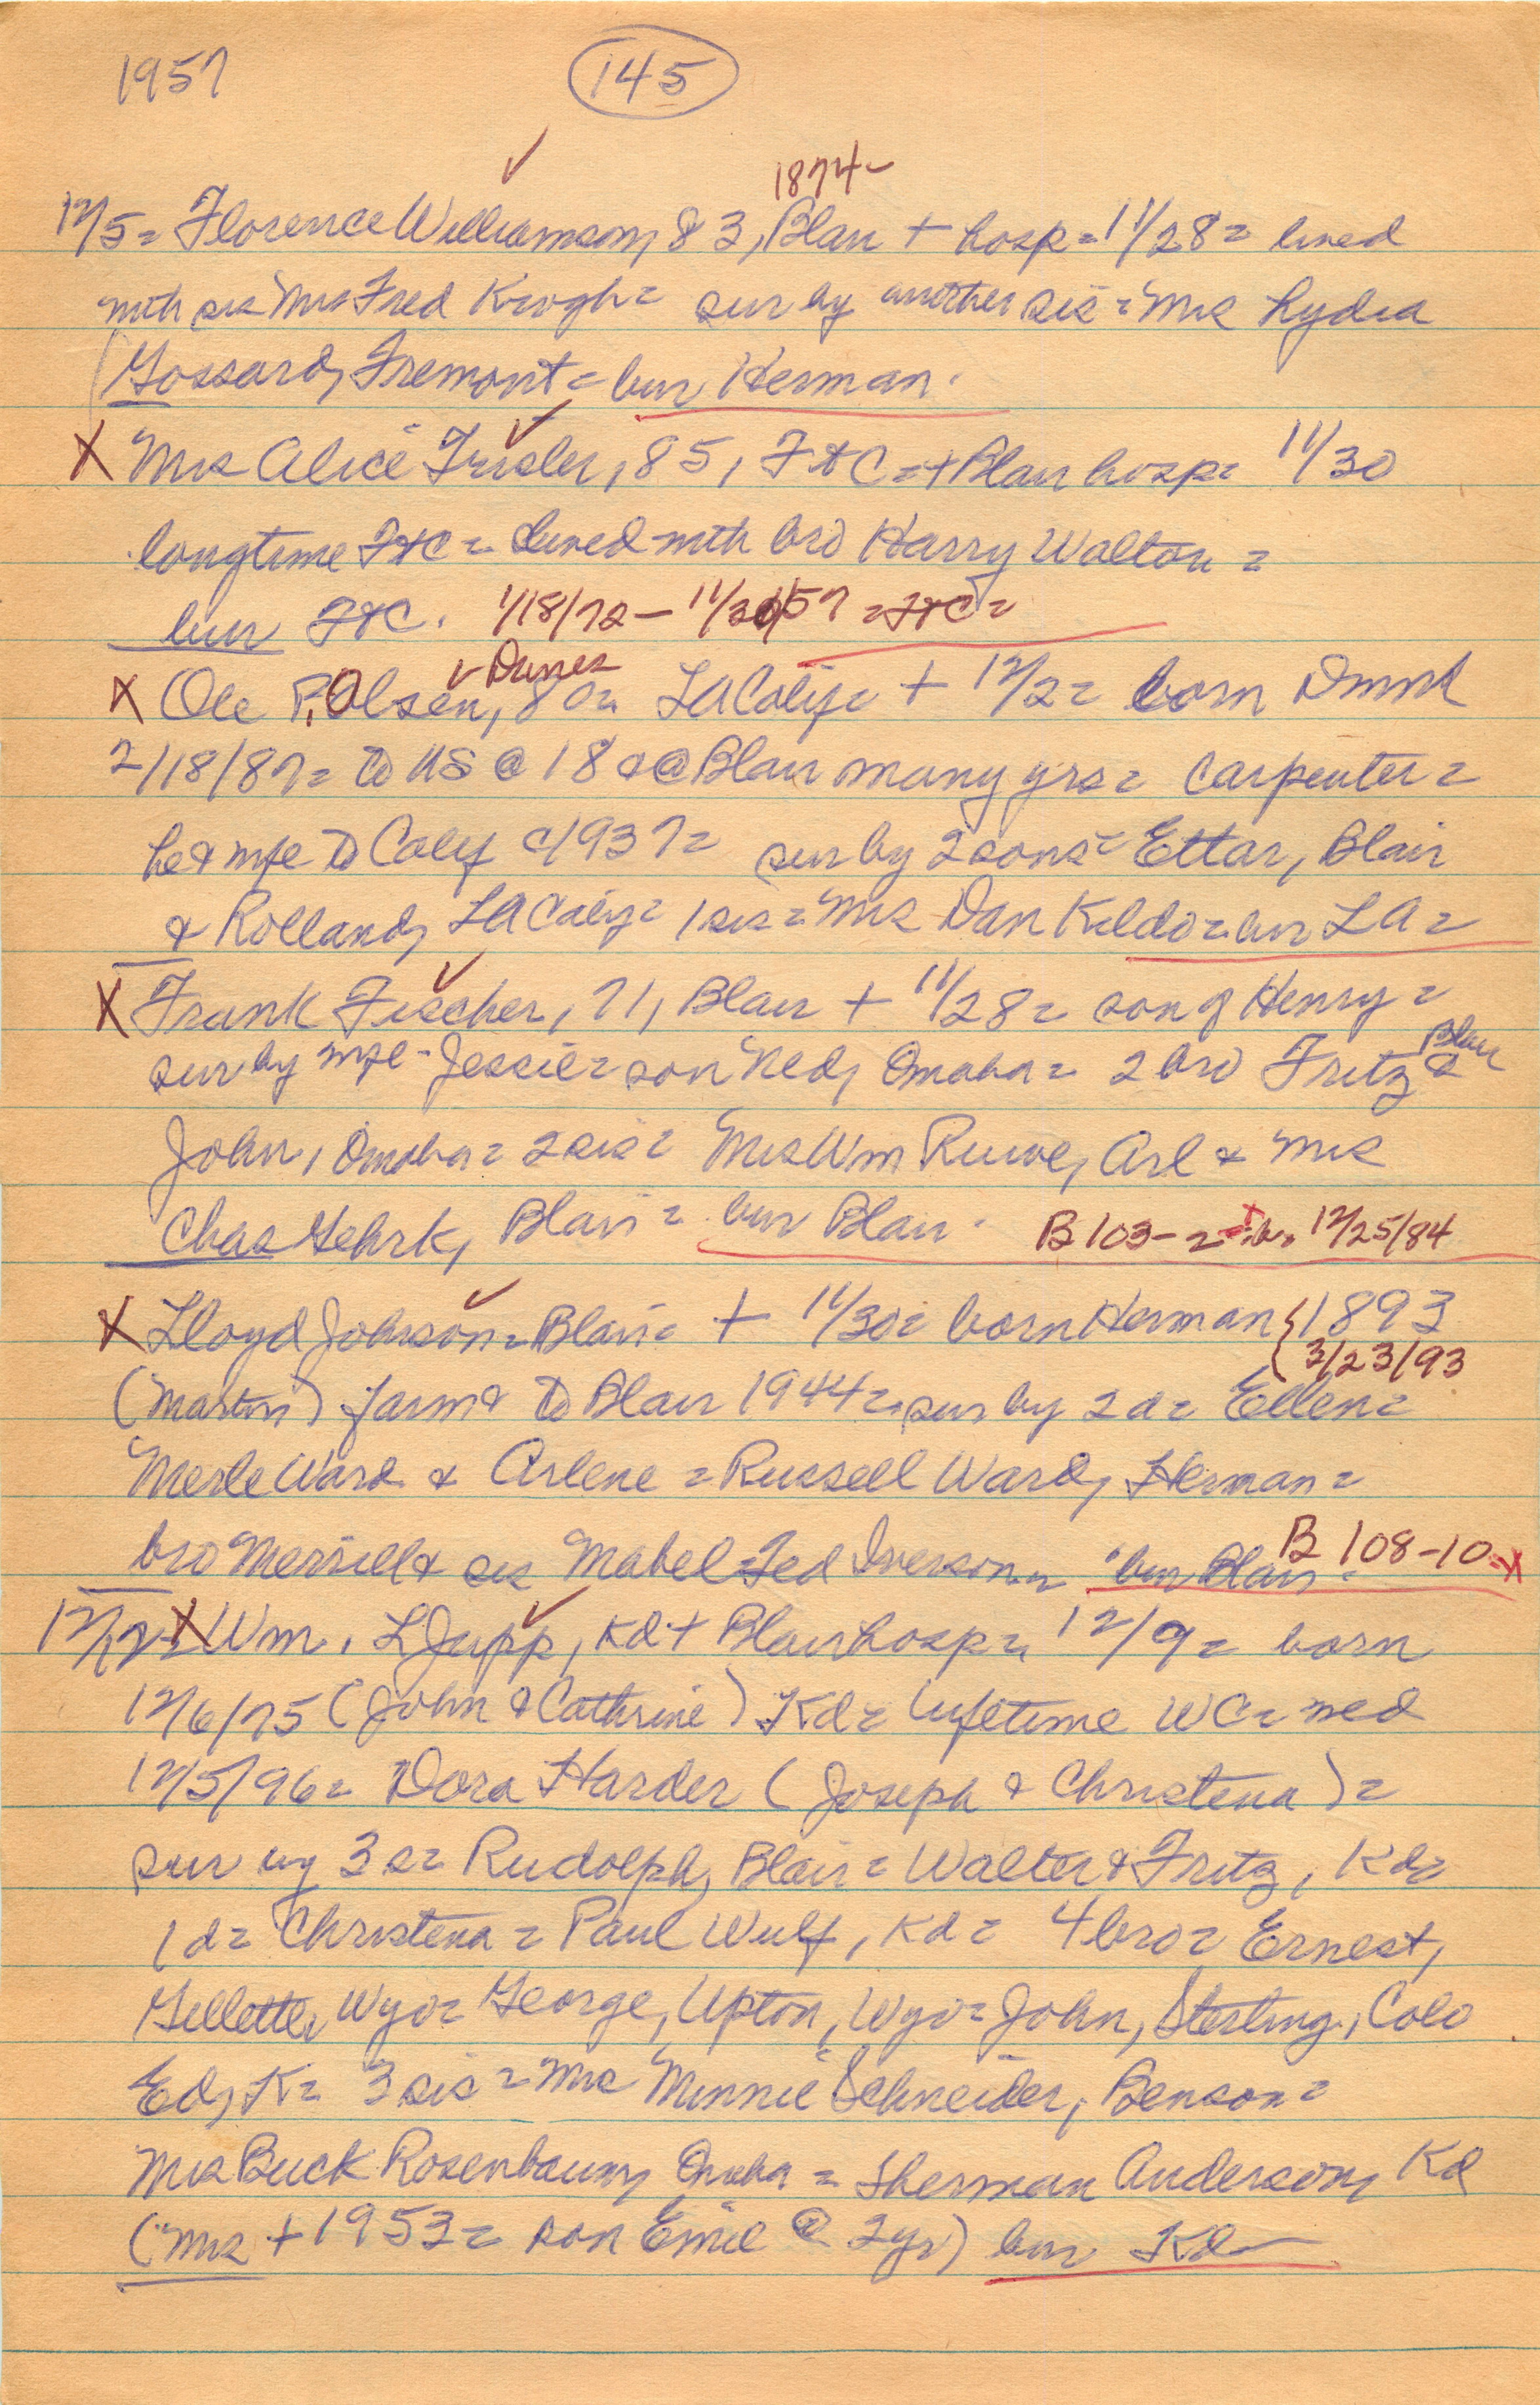 1957 145
1874-
12/5= Florence Williamson, 83, Blair + hosp= 11/28= lived
with sis Mrs Fred Krogh= sur by another sis= Mrs Lydia
Gossard, Fremont= bur Herman.
X Mrs Alice Trisler, 85, Ft C=+Blair hosp= 11/30
longtime Ft C= lived with bro Harry Walton=
bur Ft C. 1/18/72- 11/30/57 =Ft C=
Dunes
X Ole P. Olsen, 80= LA Calif= + 12/2= born Dnmk
2/18/87= to US @ 18 & @ Blair many yrs= carpenter=
he & wife to Calif c1937= sur by 2 sons= Ettar, Blair
& Rolland, LA Calif= 1 sis= Mrs Dan Kildo= bur LA=
X Frank Fischer, 71, Blair + 11/28= son of Henry=
sur by wife- Jessie= son Ned, Omaha= 2 bro Fritz Blair &
John, Omaha= 2 sis= Mrs Wm Ruwe, Arl & Mrs
Chas Gehrk, Blair= bur Blair. B 103-2 =X b. 12/25/84
X Lloyd Johnson= Blair= + 11/30= born Herman {1893
{3/23/93
(Martin) farm & to Blair 1944= sur by 2 d= Ellen=
Merle Ward & Arlene= Russell Ward, Herman=
bro Merrill & sis Mabel= Ted Iverson= bur Blair= B 108-10 =X
12/12= X Wm. L Jipp, Kd + Blair hosp= 12/9= born
12/6/75 (John & Cathrine) Kd= lifetime WC= wed
12/5/96= Dora Harder (Joseph & Christena)=
sur by 3 s= Rudolph, Blair= Walter & Fritz, Kd=
1 d= Christena= Paul Wulf, Kd= 4 bro= Ernest,
Gillette, Wyo= George, Upton, Wyo= John, Sterling, Colo
Ed, K= 3 sis= Mrs Minnie Schneider, Benson=
Mrs Buck Rosenbaum, Omaha= Sherman Anderson, Kd
(Mrs + 1953= son Emil @ 2yr) bur Kd-